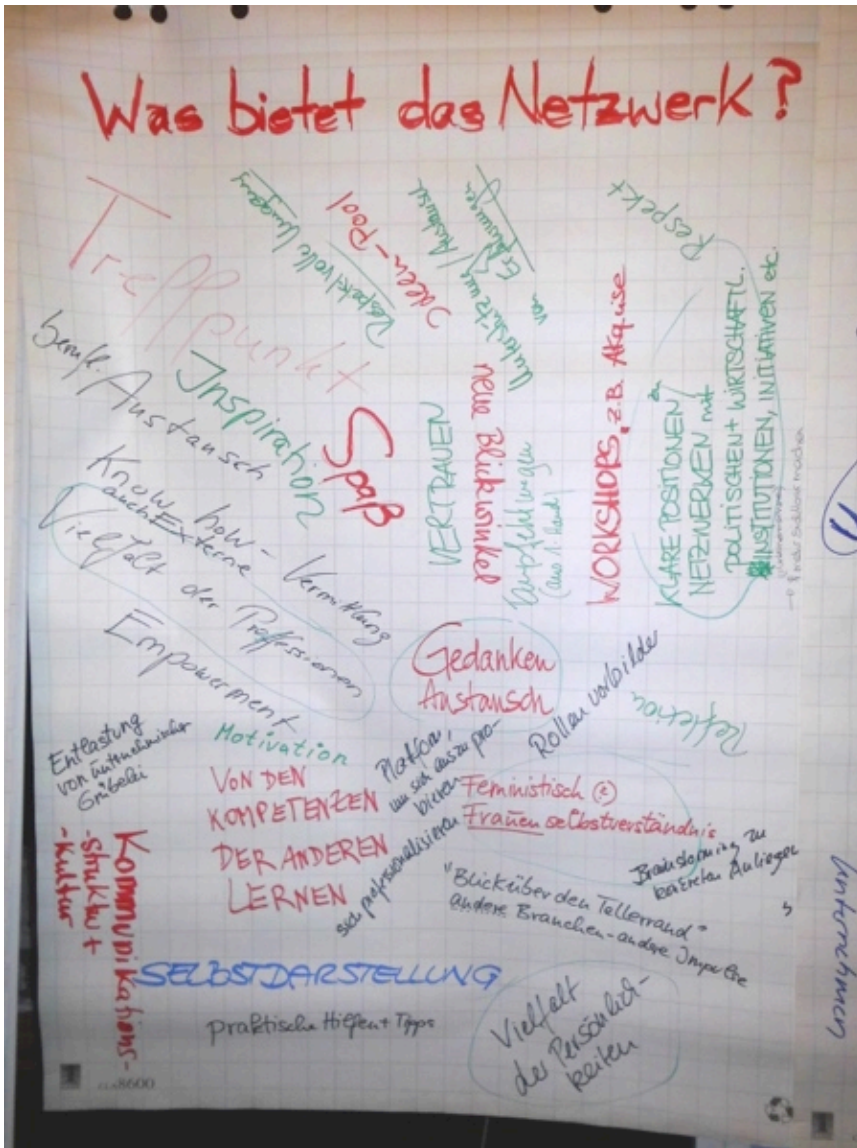 Was bietet das Netzwerk?
Treffpunkt
Respektvolle Umgang
Ideen-Pool
Unterstützung / Austausch
von Erfahrungen
Respekt
berufl.
Austausch
Inspiration
Spaß
VERTRAUEN
neue Blickwinkel
Empfehlungen
(aus 1. Hand)
WORKSHOPS, z.B. Akquise
KLARE POSITIONEN zu
NETZWERKEN mit
POLITISCHEN + WIRTSCHAFTL.
INSTITUTIONEN, INITIATIVEN etc.
Know how - Vermittlung
auch Externe
Vielfalt der Professionen
Empowerment
Gedanken
Austausch
Rollenvorbilder
Reflektion
Entlastung
von unternehmerischer
Grübelei
Motivation
VON DEN
KOMPETENZEN
DER ANDEREN
LERNEN
Platform,
um sich auszupro-
bieren
sich professionalisieren
Feministisch
Frauenselbstverständnis
Brainstorming zu
konkreten Anliegen
"Blick über den Tellerrand"
andere Branchen - andere Impulse
Kommunikations-
-struktur +
-kultur
SELBSTDARSTELLUNG
praktische Hilfen + Tipps
Vielfalt
der Persönlich-
keiten
Unternehmen
8600